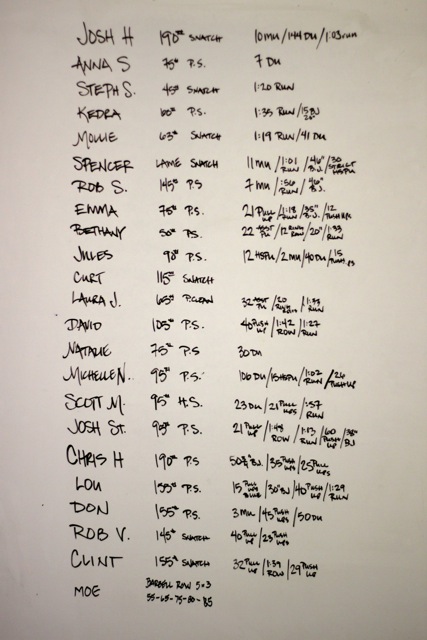 JOSH H 190# SNATCH 10 MU/144 DU/1:03 RUN
ANNA S 75# P.S. 7 DU
STEPH S. 45# SNATCH 1:20 RUN
KEDRA 60# P.S. 1:35 RUN/15 BJ 20"
MOLLIE 63# SNATCH 1:19 RUN/41 DU
SPENCER LAME SNATCH 11 MU/1:01 RUN/46" B.J./30 STRICT HSPU
ROB S. 145# P.S 7 MU/:56 RUN/46" B.J.
EMMA 75# P.S. 21 PULL UP/1:18 RUN/35" B.J./12 PUSH UPS
BETHANY 50# P.S. 22 ASST PU/12 RING ROW/20"/1:33 RUN
JULES 90# P.S. 12 HSPU/2 MU/40 DU/15 PUSH UPS
CURT 115# SNATCH
LAURA J. 65# P.CLEAN 32 ASST PU/20 RING ROWS/RUN
DAVID 105# P.S. 40 PUSH UP/1:42 ROW/1:27 RUN
NATALIE 75# P.S 30 DU
MICHELLE N. 95# P.S. 106 DU/15 HSPU/1:02 RUN/26 PUSH UP
SCOTT M. 95# H.S. 23 DU/21 PULL UPS/:57 RUN
JOSH ST. 95# P.S. 21 PULL UP/1:48 ROW/1:13 RUN/60 PUSH UP/38" BJ
CHRIS H 190# P.S BJ/35 PUSH UPS/25 PULL UPS
LOU 135# P.S. 15 PULL UPS BLUE/30" BJ/40 PUSH UP/1:29 RUN
DON 155# P.S. 3 MU/45 PUSH UPS/50 DU
ROB V. 145# SNATCH 40 PULL UP/25 PUSH UPS
CLINT 155# SNATCH 32 PULL UP/1:39 ROW/29 PUSH UP
MOE BARBELL ROW 5x3
55-65-75-80-85